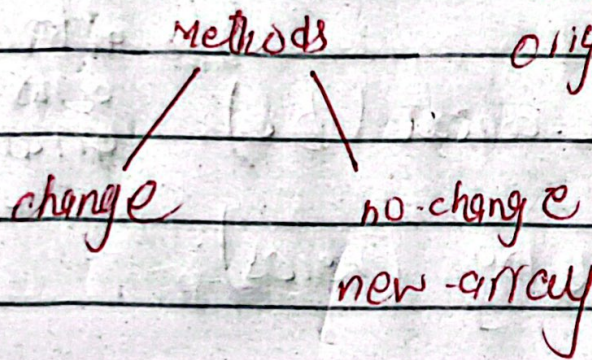 Methods orig
change no-change
new-array